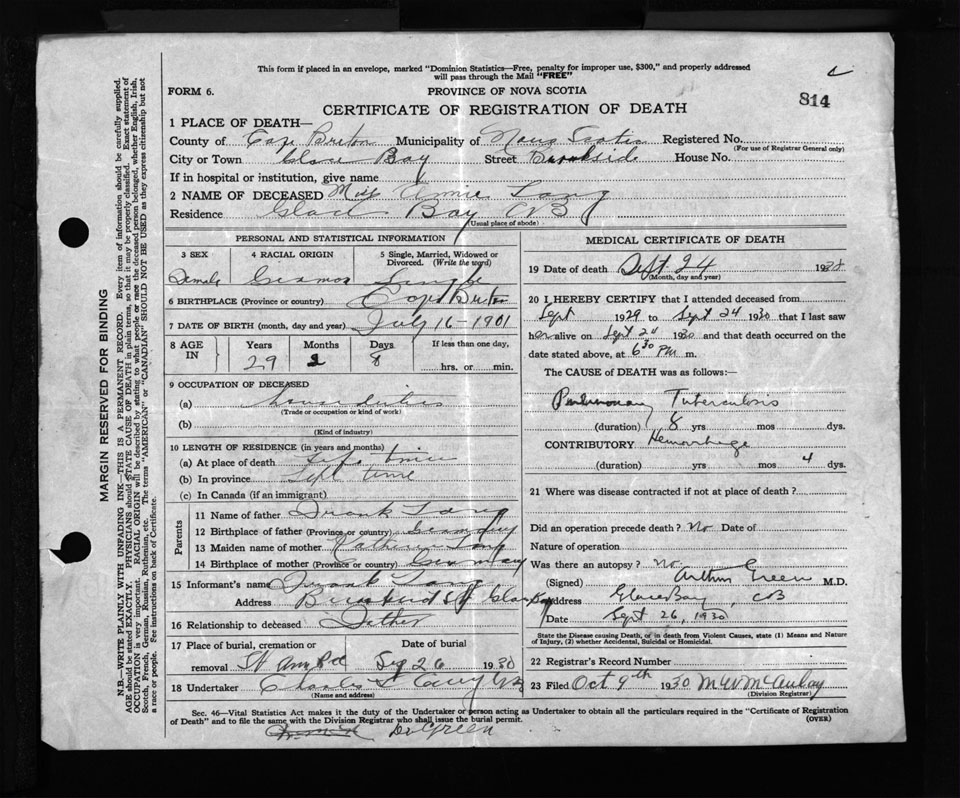 This form if placed in an envelope, marked "Dominion Statistics—Free, penalty for improper use, $300," and properly addressed
will pass through the Mail "FREE"
FORM 6.
PROVINCE OF NOVA SCOTIA
814
CERTIFICATE OF REGISTRATION OF DEATH
1 PLACE OF DEATH—
County of Cape Breton Municipality of Nova Scotia Registered No.
(For use of Registrar General only)
City or Town Glace Bay Street Brookside House No.
If in hospital or institution, give name
2 NAME OF DECEASED Miss Annie Lang
Residence Glace Bay CB
(Usual place of abode)
PERSONAL AND STATISTICAL INFORMATION
3 SEX 4 RACIAL ORIGIN 5 Single, Married, Widowed or Divorced. (Write the word)
Female German Single
6 BIRTHPLACE (Province or country) Cape Breton
7 DATE OF BIRTH (month, day and year) July 16-1901
8 AGE IN Years Months Days If less than one day,
29 2 8 hrs. or min.
9 OCCUPATION OF DECEASED
(a) House duties
(Trade or occupation or kind of work)
(b)
(Kind of industry)
10 LENGTH OF RESIDENCE (in years and months)
(a) At place of death Life time
(b) In province time
(c) In Canada (if an immigrant)
Parents
11 Name of father Frank Lang
12 Birthplace of father (Province or country) Germany
13 Maiden name of mother
14 Birthplace of mother (Province or country) Germany
15 Informant's name Frank Lang
Address St Glace Bay
16 Relationship to deceased Father
17 Place of burial, cremation or removal Date of burial
St Ann Sep 26 1930
18 Undertaker Charles
(Name and address)
MEDICAL CERTIFICATE OF DEATH
19 Date of death Sept 24 1930
(Month, day and year)
20 I HEREBY CERTIFY that I attended deceased from
Sept 1929 to Sept 24 1930 that I last saw
her alive on Sept 24 1930 and that death occurred on
date stated above, at 6 30 PM m.
The CAUSE of DEATH was as follows:—
Pulmonary Tuberculosis
(duration) 8 yrs mos dys.
CONTRIBUTORY Hemorrhage
(duration) yrs mos 4 dys.
21 Where was disease contracted if not at place of death?
Did an operation precede death? No Date of
Nature of operation
Was there an autopsy? No
(Signed) Arthur Green M.D.
Address Glace Bay, CB
Date Sept 26, 1930
State the Disease causing Death, or in death from Violent Causes, state (1) Means and Nature
of Injury, (2) whether Accidental, Suicidal or Homicidal.
22 Registrar's Record Number
23 Filed Oct 9th 1930
(Division Registrar)
Sec. 46—Vital Statistics Act makes it the duty of the Undertaker or person acting as Undertaker to obtain all the particulars required in the "Certificate of Registration
of Death" and to file the same with the Division Registrar who shall issue the burial permit. (OVER)
Dr Green
MARGIN RESERVED FOR BINDING
N.B.—WRITE PLAINLY WITH UNFADING INK—THIS IS A PERMANENT RECORD. Every item of information should be carefully supplied.
AGE should be stated EXACTLY. PHYSICIANS should STATE CAUSE OF DEATH in plain terms, so that it may be properly classified. Exact statement of
OCCUPATION is very important. RACIAL ORIGIN will be described by stating to what people or race the deceased person belonged, whether English, Irish,
Scotch, French, German, Russian, Ruthenian, etc. The terms "AMERICAN" or "CANADIAN" SHOULD NOT BE USED as they express citizenship but not
a race or people. See instructions on back of Certificate.